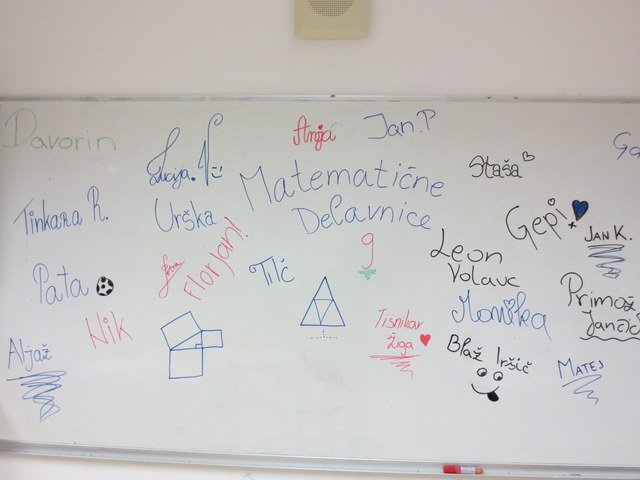 Davorin
Anja
Jan.P
Lucija.N
Staša
Matematične
Delavnice
Tinkara R.
Urška
Gepi
JAN K.
Florjan!
g
Leon
Volavc
Pata
Tilč
Monika
Primož
Jančič
Nik
Tisnikar
Žiga
Aljaž
Blaž Iršič
MATEJ